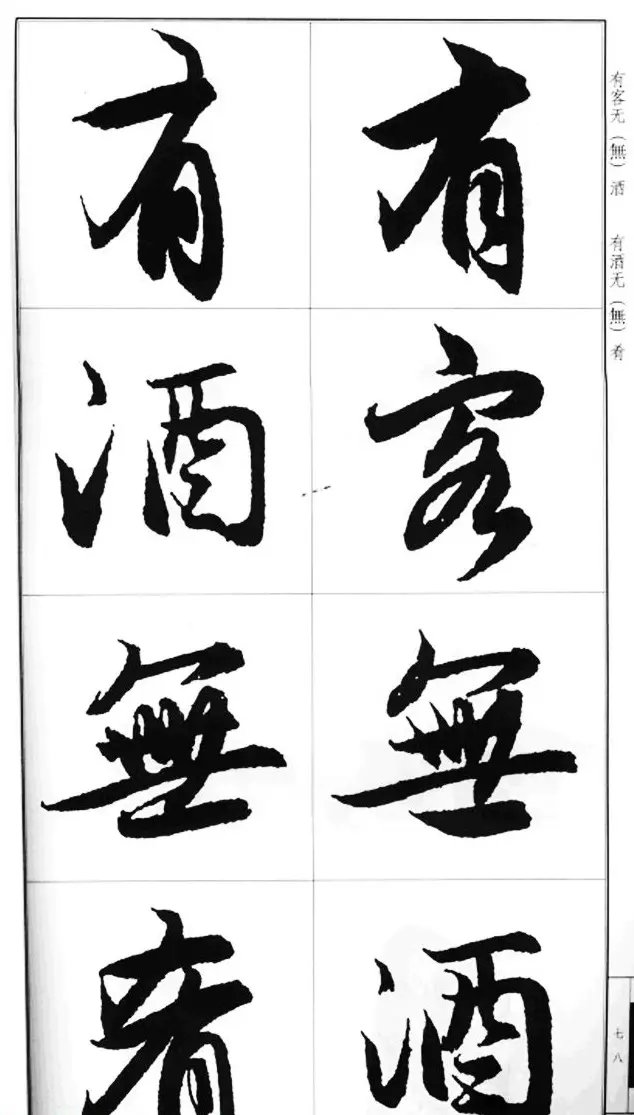 有客无（無）酒　有酒无（無）肴
有客無酒
有酒無肴
七八